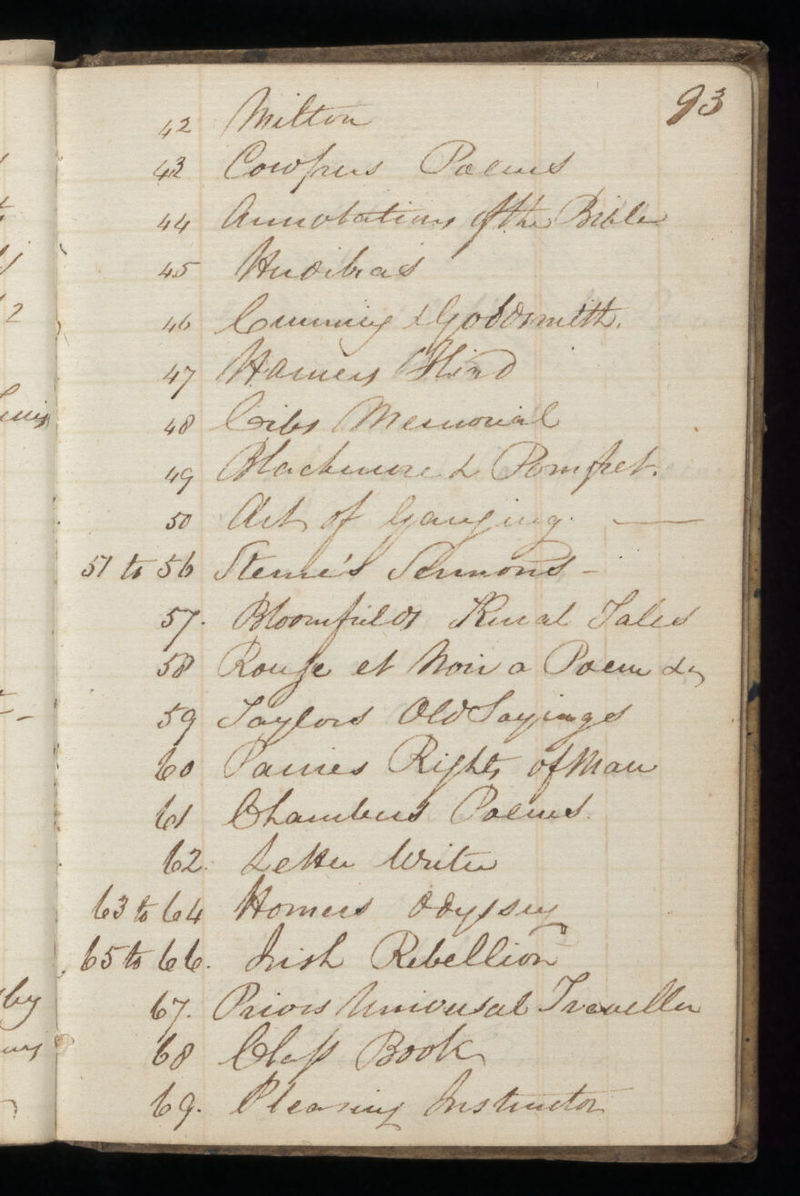 93
42 Milton
43 Cowpers Poems
44 Annotations of the Bible
45 Hudibras
46 Cunning & Goldsmith.
47 Homers Iliad
48 Memorial
49 Blackmore & Pomfret.
50 Art of Gauging. —
51 to 56 Sterne's Sermons -
57. Bloomfields Rural Tales
58 Rouge et Noir a Poem &c
59 Taylors Old Sayings
60 Paines Rights of Man
61 Chambers Poems.
62. Letter Writer
63 to 64 Homers Odyssey
65 to 66. Irish Rebellion
67. Priors Universal Traveller
68 Class Book
69. Pleasing Instructor